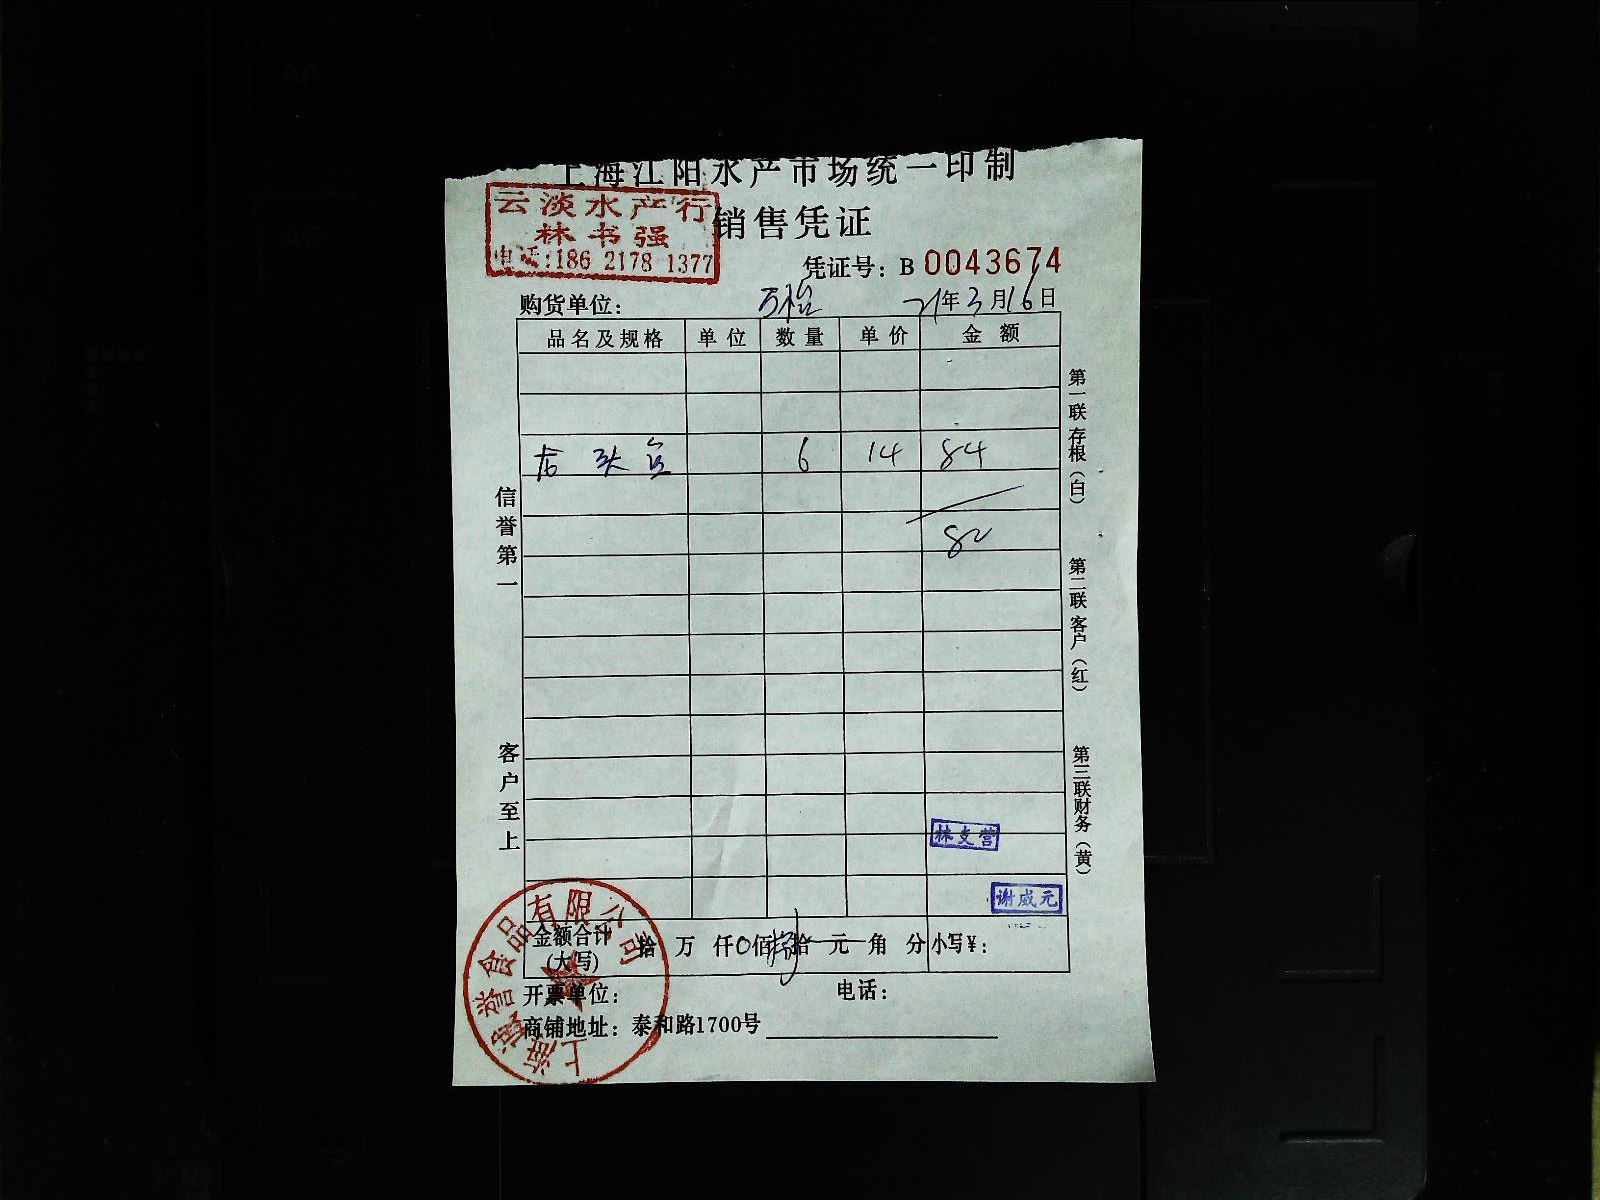 上海江阳水产市场统一印制
云淡水产行
林书强
电话:186 2178 1377
销售凭证
凭证号: B 0043674
购货单位: 万裕 21年3月16日
品名及规格 单位 数量 单价 金额
6 14 84
82
信誉第一
客户至上
第一联 存根(白)
第二联 客户(红)
第三联 财务(黄)
林支营
谢威元
金额合计(大写) 拾 万 仟 0佰 捌拾 元 角 分 小写¥:
开票单位: 电话:
商铺地址: 泰和路1700号
食品有限公司
上海